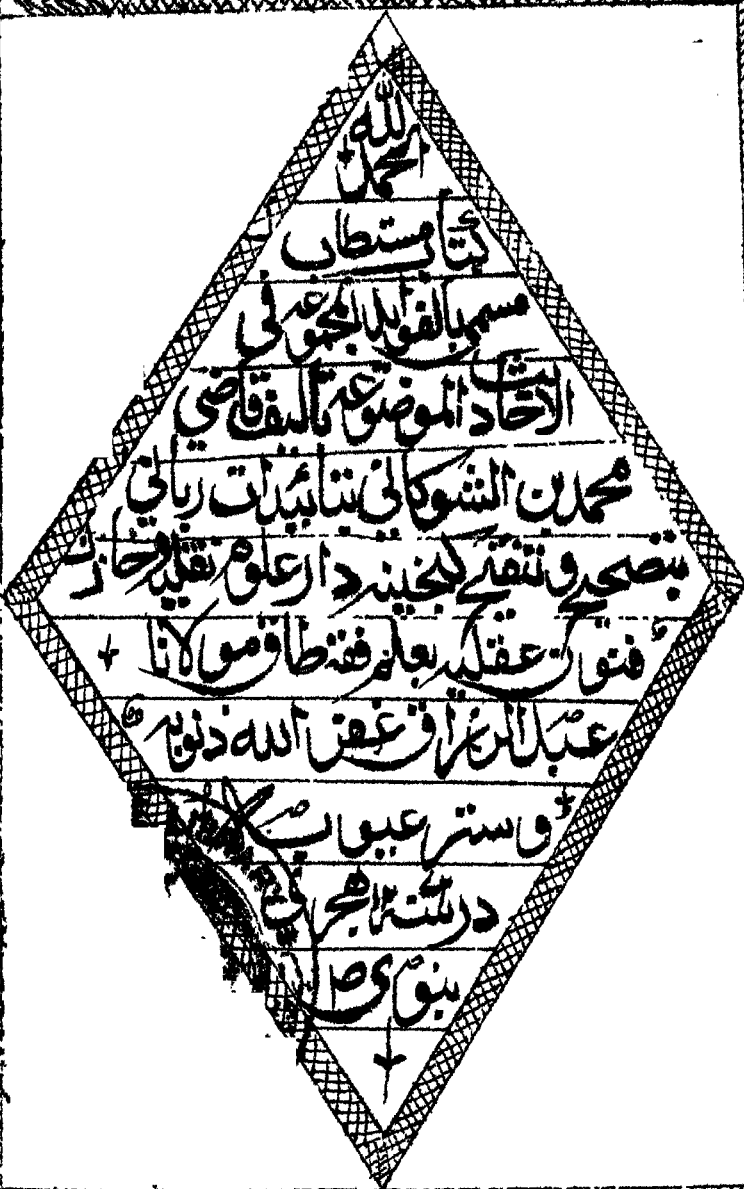 الحمد لله
كتاب مستطاب
مسمى بالفوايد المجموعه فى
الاحاديث الموضوعه تاليف قاضى
محمد بن الشوكانى بتائيدات ربانى
بتصحيح و تنقيح گنجينه دار علوم نقليه و خازن
فنون عقليه بعلم فقه طاق مولانا
عبد الرزاق غفر الله ذنوبه
و ستر عيوبه
در هجرى
نبوى